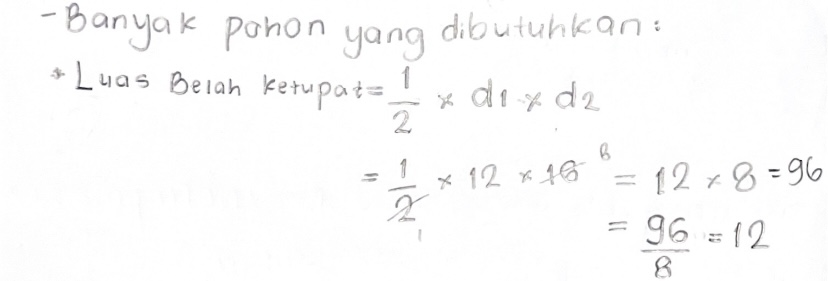 - Banyak pohon yang dibutuhkan:
* Luas Belah ketupat = 1/2 × d1 × d2
= 1/2 × 12 × 16 8 = 12 × 8 = 96
1
= 96/8 = 12